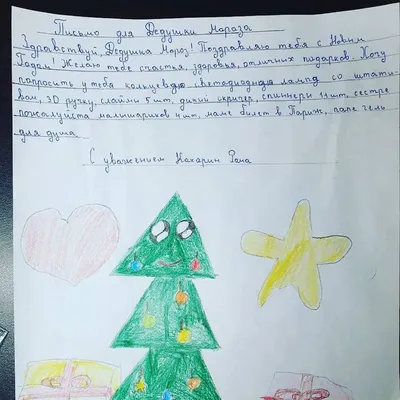 Письмо для Дедушки Мороза
Здравствуй, Дедушка Мороз! Поздравляю тебя с Новым
Годом! Желаю тебе счастья, здоровья, отличных подарков. Хочу
попросить у тебя кольцевую светодиодную лампу со штати-
вом, 3D ручку, слаймы 5 шт, дикий скричер, спиннеры 11 шт, сестре
пожалуйста малышариков 4 шт, маме билет в Париж, папе гель
для душа
С уважением Кахарин Рома